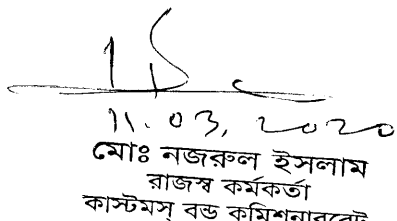 11.03.2020
মোঃ নজরুল ইসলাম
রাজস্ব কর্মকর্তা
কাস্টমস্ বন্ড কমিশনারেট